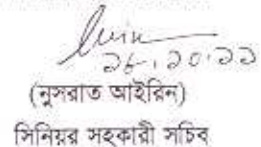 ২৮.১০.২১
(নুসরাত আইরিন)
সিনিয়র সহকারী সচিব